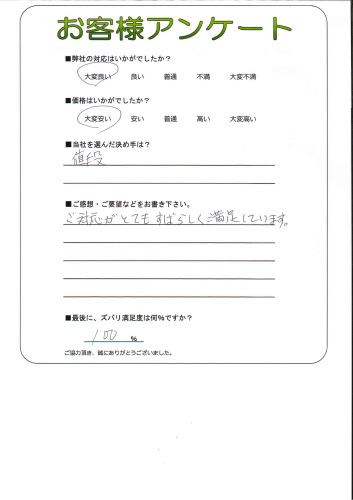 お客様アンケート
■弊社の対応はいかがでしたか？
大変良い 良い 普通 不満 大変不満
■価格はいかがでしたか？
大変安い 安い 普通 高い 大変高い
■当社を選んだ決め手は？
値段
■ご感想・ご要望などをお書き下さい。
ご対応がとてもすばらしく満足しています。
■最後に、ズバリ満足度は何%ですか？
100 %
ご協力頂き、誠にありがとうございました。